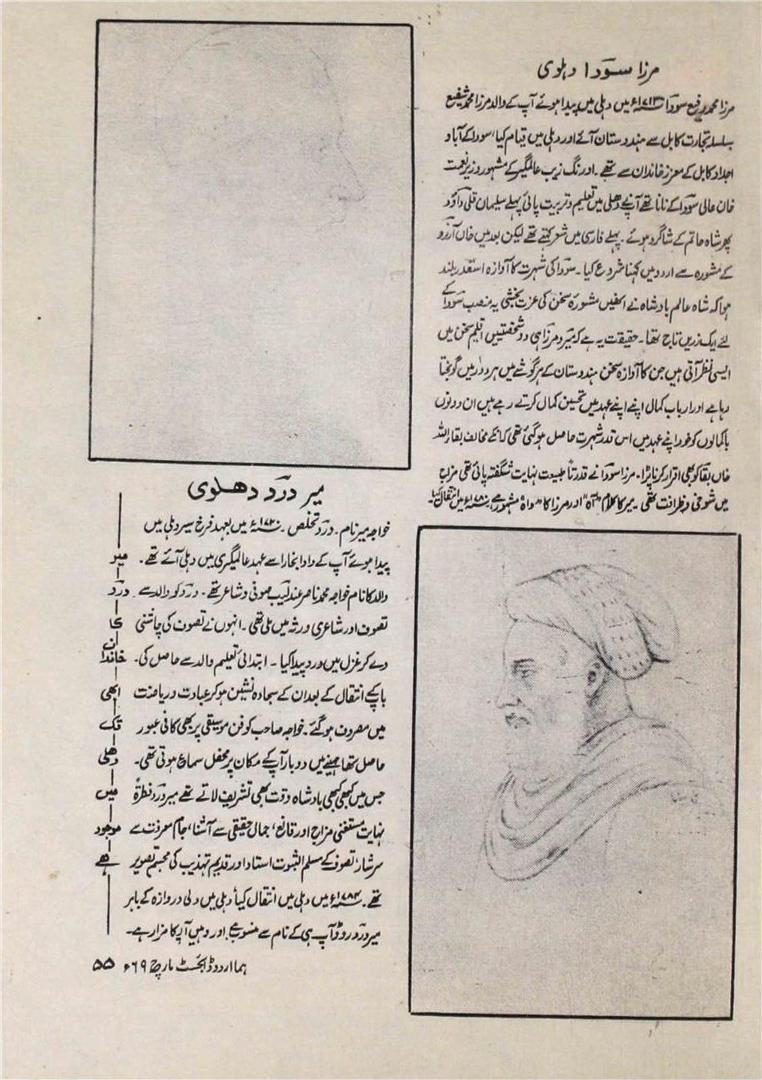 مرزا سودا دہلوی
مرزا محمد رفیع سودا ۱۷۱۳ء میں دہلی میں پیدا ہوئے آپ کے والد مرزا محمد شفیع
بسلسلہ تجارت کابل سے ہندوستان آئے اور دہلی میں قیام کیا، سودا کے آباو
اجداد کابل کے معزز خاندان سے تھے۔ اورنگ زیب عالمگیر کے مشہور وزیر نعمت
خان عالی سودا کے نانا تھے آپنے دھلی میں تعلیم و تربیت پائی پہلے سلیمان قلی داؤد
پھر شاہ حاتم کے شاگرد ہوئے۔ پہلے فارسی میں شعر کہتے تھے لیکن بعد میں خاں آرزو
کے مشورہ سے اردو میں کہنا شروع کیا۔ سودا کی شہرت کا آوازہ اسقدر بلند
ہوا کہ شاہ عالم بادشاہ نے انھیں مشورہ سخن کی عزت بخشی یہ منصب سودا کے
لئے ایک زریں تاج تھا۔ حقیقت یہ ہے کہ میر و مرزا ہی دو شخصیتیں اقلیم سخن میں
ایسی نظر آتی ہیں جن کا آوازہ سخن ہندوستان کے ہر گوشے میں ہر دور میں گونجتا
رہا ہے اور ارباب کمال اپنے اپنے عہد میں تحسین کمال کرتے رہے ہیں ان دونوں
باکمالوں کو خود اپنے عہد میں اس قدر شہرت حاصل ہو گئی تھی کہ انکے مخالف بقا اللہ
خاں بقا کو بھی اقرار کرنا پڑا۔ مرزا سودا نے قدرتاً طبیعت نہایت شگفتہ پائی تھی مزاج
میں شوخی و ظرافت تھی۔ میر کا کلام "آہ" اور مرزا کا "واہ" مشہور ہے ۱۷۸۰ء میں انتقال کیا۔
میر درد دھلوی
خواجہ میر نام۔ درد تخلص۔ ۱۷۲۰ء میں بعہد فرخ سیر دہلی میں
پیدا ہوئے آپ کے دادا بخارا سے عہد عالمگیری میں دہلی آئے تھے۔
والد کا نام خواجہ محمد ناصر عندلیب صوفی و شاعر تھے۔ درد کو والد سے
تصوف اور شاعری ورثہ میں ملی تھی۔ انہوں نے تصوف کی چاشنی
دے کر غزل میں درد پیدا کیا۔ ابتدائی تعلیم والد سے حاصل کی۔
باپ کے انتقال کے بعد ان کے سجادہ نشین ہو کر عبادت و ریاضت
میں مصروف ہو گئے۔ خواجہ صاحب کو فن موسیقی پر بھی کافی عبور
حاصل تھا مہینے میں دو بار آپ کے مکان پر محفل سماع ہوتی تھی۔
جس میں کبھی کبھی بادشاہ وقت بھی تشریف لاتے تھے میر درد فطرۃً
نہایت مستغنی مزاج اور قانع، جمال حقیقی سے آشنا، جام معرفت سے
سرشار، تصوف کے مسلم الثبوت استاد اور قدیم تہذیب کی مجسم تصویر
تھے۔ ۱۷۸۴ء میں دہلی میں انتقال کیا، دہلی میں دلی دروازہ کے باہر
میر درد روڈ آپ ہی کے نام سے منسوب ہے۔ اور وہیں آپ کا مزار ہے۔
میر
درد
کا
خاندان
ابھی
تک
دھلی
میں
موجود
ھے
ہما اردو ڈائجسٹ مارچ ۶۹ء ۵۵